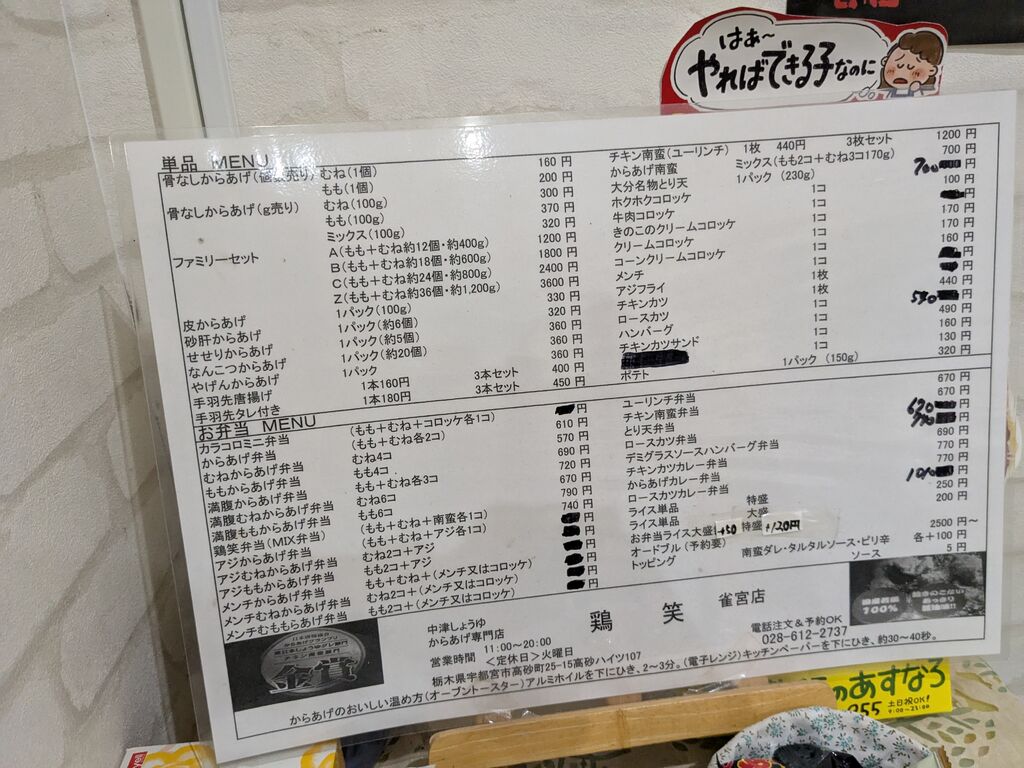 はあ～
やればできる子なのに
単品 MENU
骨なしからあげ(個 売り) むね(1個) 160 円
もも(1個) 200 円
骨なしからあげ(g売り) むね(100g) 300 円
もも(100g) 370 円
ミックス(100g) 320 円
ファミリーセット A(もも+むね約12個・約400g) 1200 円
B(もも+むね約18個・約600g) 1800 円
C(もも+むね約24個・約800g) 2400 円
Z(もも+むね約36個・約1,200g) 3600 円
皮からあげ 1パック(100g) 330 円
砂肝からあげ 1パック(約6個) 320 円
せせりからあげ 1パック(約5個) 360 円
なんこつからあげ 1パック(約20個) 360 円
やげんからあげ 1パック 360 円
手羽先唐揚げ 1本160円 3本セット 400 円
手羽先タレ付き 1本180円 3本セット 450 円
チキン南蛮(ユーリンチ) 1枚 440円 3枚セット 1200 円
からあげ南蛮 ミックス(もも2コ+むね3コ170g) 700 円
大分名物とり天 1パック (230g) 700 円
ホクホクコロッケ 1コ 100 円
牛肉コロッケ 1コ 円
きのこのクリームコロッケ 1コ 170 円
クリームコロッケ 1コ 170 円
コーンクリームコロッケ 1コ 160 円
メンチ 1コ 円
アジフライ 1枚 円
チキンカツ 1枚 440 円
ロースカツ 1コ 530 円
ハンバーグ 1コ 490 円
チキンカツサンド 1コ 160 円
130 円
ポテト 1パック (150g) 320 円
お弁当 MENU
カラコロミニ弁当 (もも+むね+コロッケ各1コ) 円
からあげ弁当 (もも+むね各2コ) 610 円
むねからあげ弁当 むね4コ 570 円
ももからあげ弁当 もも4コ 690 円
満腹からあげ弁当 もも+むね各3コ 720 円
満腹むねからあげ弁当 むね6コ 670 円
満腹ももからあげ弁当 もも6コ 790 円
鶏笑弁当(MIX弁当) (もも+むね+南蛮各1コ) 740 円
アジからあげ弁当 (もも+むね+アジ各1コ) 円
アジむねからあげ弁当 むね2コ+アジ 円
アジももからあげ弁当 もも2コ+アジ 円
メンチからあげ弁当 もも+むね+(メンチ又はコロッケ) 円
メンチむねからあげ弁当 むね2コ+(メンチ又はコロッケ) 円
メンチむももらあげ弁当 もも2コ+(メンチ又はコロッケ) 円
ユーリンチ弁当 670 円
チキン南蛮弁当 670 円
とり天弁当 円
ロースカツ弁当 円
デミグラスソースハンバーグ弁当 690 円
チキンカツカレー弁当 770 円
からあげカレー弁当 770 円
ロースカツカレー弁当 円
ライス単品 特盛 250 円
ライス単品 大盛 200 円
お弁当ライス大盛 +50 特盛 +120円
オードブル(予約要) 2500 円～
トッピング 南蛮ダレ・タルタルソース・ピリ辛ソース 各+100 円
5 円
中津しょうゆ
からあげ専門店
鶏 笑 雀宮店
営業時間 11:00～20:00 <定休日>火曜日
電話注文&予約OK
028-612-2737
栃木県宇都宮市高砂町25-15高砂ハイツ107
からあげのおいしい温め方(オーブントースター)アルミホイルを下にひき、2～3分。(電子レンジ)キッチンペーパーを下にひき、約30～40秒。
金賞
100%
のあすなろ
855 土日祝OK!